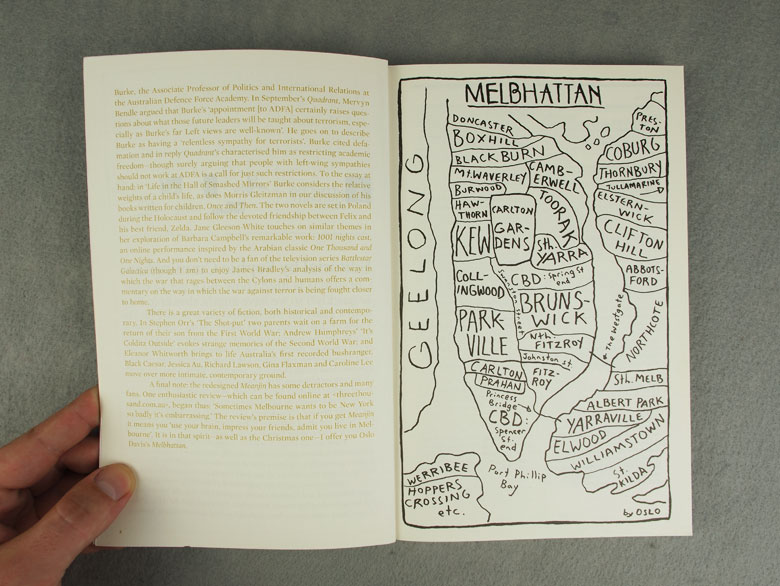 Burke, the Associate Professor of Politics and International Relations at
the Australian Defence Force Academy. In September's Quadrant, Mervyn
Bendle argued that Burke's 'appointment [to ADFA] certainly raises ques-
tions about what those future leaders will be taught about terrorism, espe-
cially as Burke's far Left views are well-known'. He goes on to describe
Burke as having a 'relentless sympathy for terrorists'. Burke cited defa-
mation and in reply Quadrant's characterised him as restricting academic
freedom—though surely arguing that people with left-wing sympathies
should not work at ADFA is a call for just such restrictions. To the essay at
hand: in 'Life in the Hall of Smashed Mirrors' Burke considers the relative
weights of a child's life, as does Morris Gleitzman in our discussion of his
books written for children, Once and Then. The two novels are set in Poland
during the Holocaust and follow the devoted friendship between Felix and
his best friend, Zelda. Jane Gleeson-White touches on similar themes in
her exploration of Barbara Campbell's remarkable work: 1001 nights cast,
an online performance inspired by the Arabian classic One Thousand and
One Nights. And you don't need to be a fan of the television series Battlestar
Galactica (though I am) to enjoy James Bradley's analysis of the way in
which the war that rages between the Cylons and humans offers a com-
mentary on the way in which the war against terror is being fought closer
to home.
There is a great variety of fiction, both historical and contempo-
rary. In Stephen Orr's 'The Shot-put' two parents wait on a farm for the
return of their son from the First World War; Andrew Humphreys' 'It's
Colditz Outside' evokes strange memories of the Second World War; and
Eleanor Whitworth brings to life Australia's first recorded bushranger,
Black Caesar. Jessica Au, Richard Lawson, Gina Flaxman and Caroline Lee
move over more intimate, contemporary ground.
A final note: the redesigned Meanjin has some detractors and many
fans. One enthusiastic review—which can be found online at <threethou-
sand.com.au>, began thus: 'Sometimes Melbourne wants to be New York
so badly it's embarrassing.' The review's premise is that if you get Meanjin
it means you 'use your brain, impress your friends, admit you live in Mel-
bourne'. It is in that spirit—as well as the Christmas one—I offer you Oslo
Davis's Melbhattan.
MELBHATTAN
GEELONG
DONCASTER
BOXHILL
BLACKBURN
Mt.WAVERLEY
BURWOOD
CAMB-
ERWELL
HAW-
THORN
CARLTON
GAR-
DENS
TOORAK
KEW
Sth.
YARRA
COLL-
INGWOOD
CBD: Spring St
end
Swanston Street
BRUNS-
WICK
PARK-
VILLE
Nth.
FITZROY
Johnston St.
FITZ-
ROY
CARLTON
PRAHAN
Princess
Bridge
CBD:
Spencer
St.
end
PRES-
TON
COBURG
THORNBURY
TULLAMARINE
ELSTERN-
WICK
CLIFTON
HILL
ABBOTS-
FORD
The Westgate
NORTHCOTE
Sth. MELB
ALBERT PARK
YARRAVILLE
ELWOOD
WILLIAMSTOWN
St.
KILDA
WERRIBEE
HOPPERS
CROSSING
etc.
Port Phillip
Bay
by OSLO